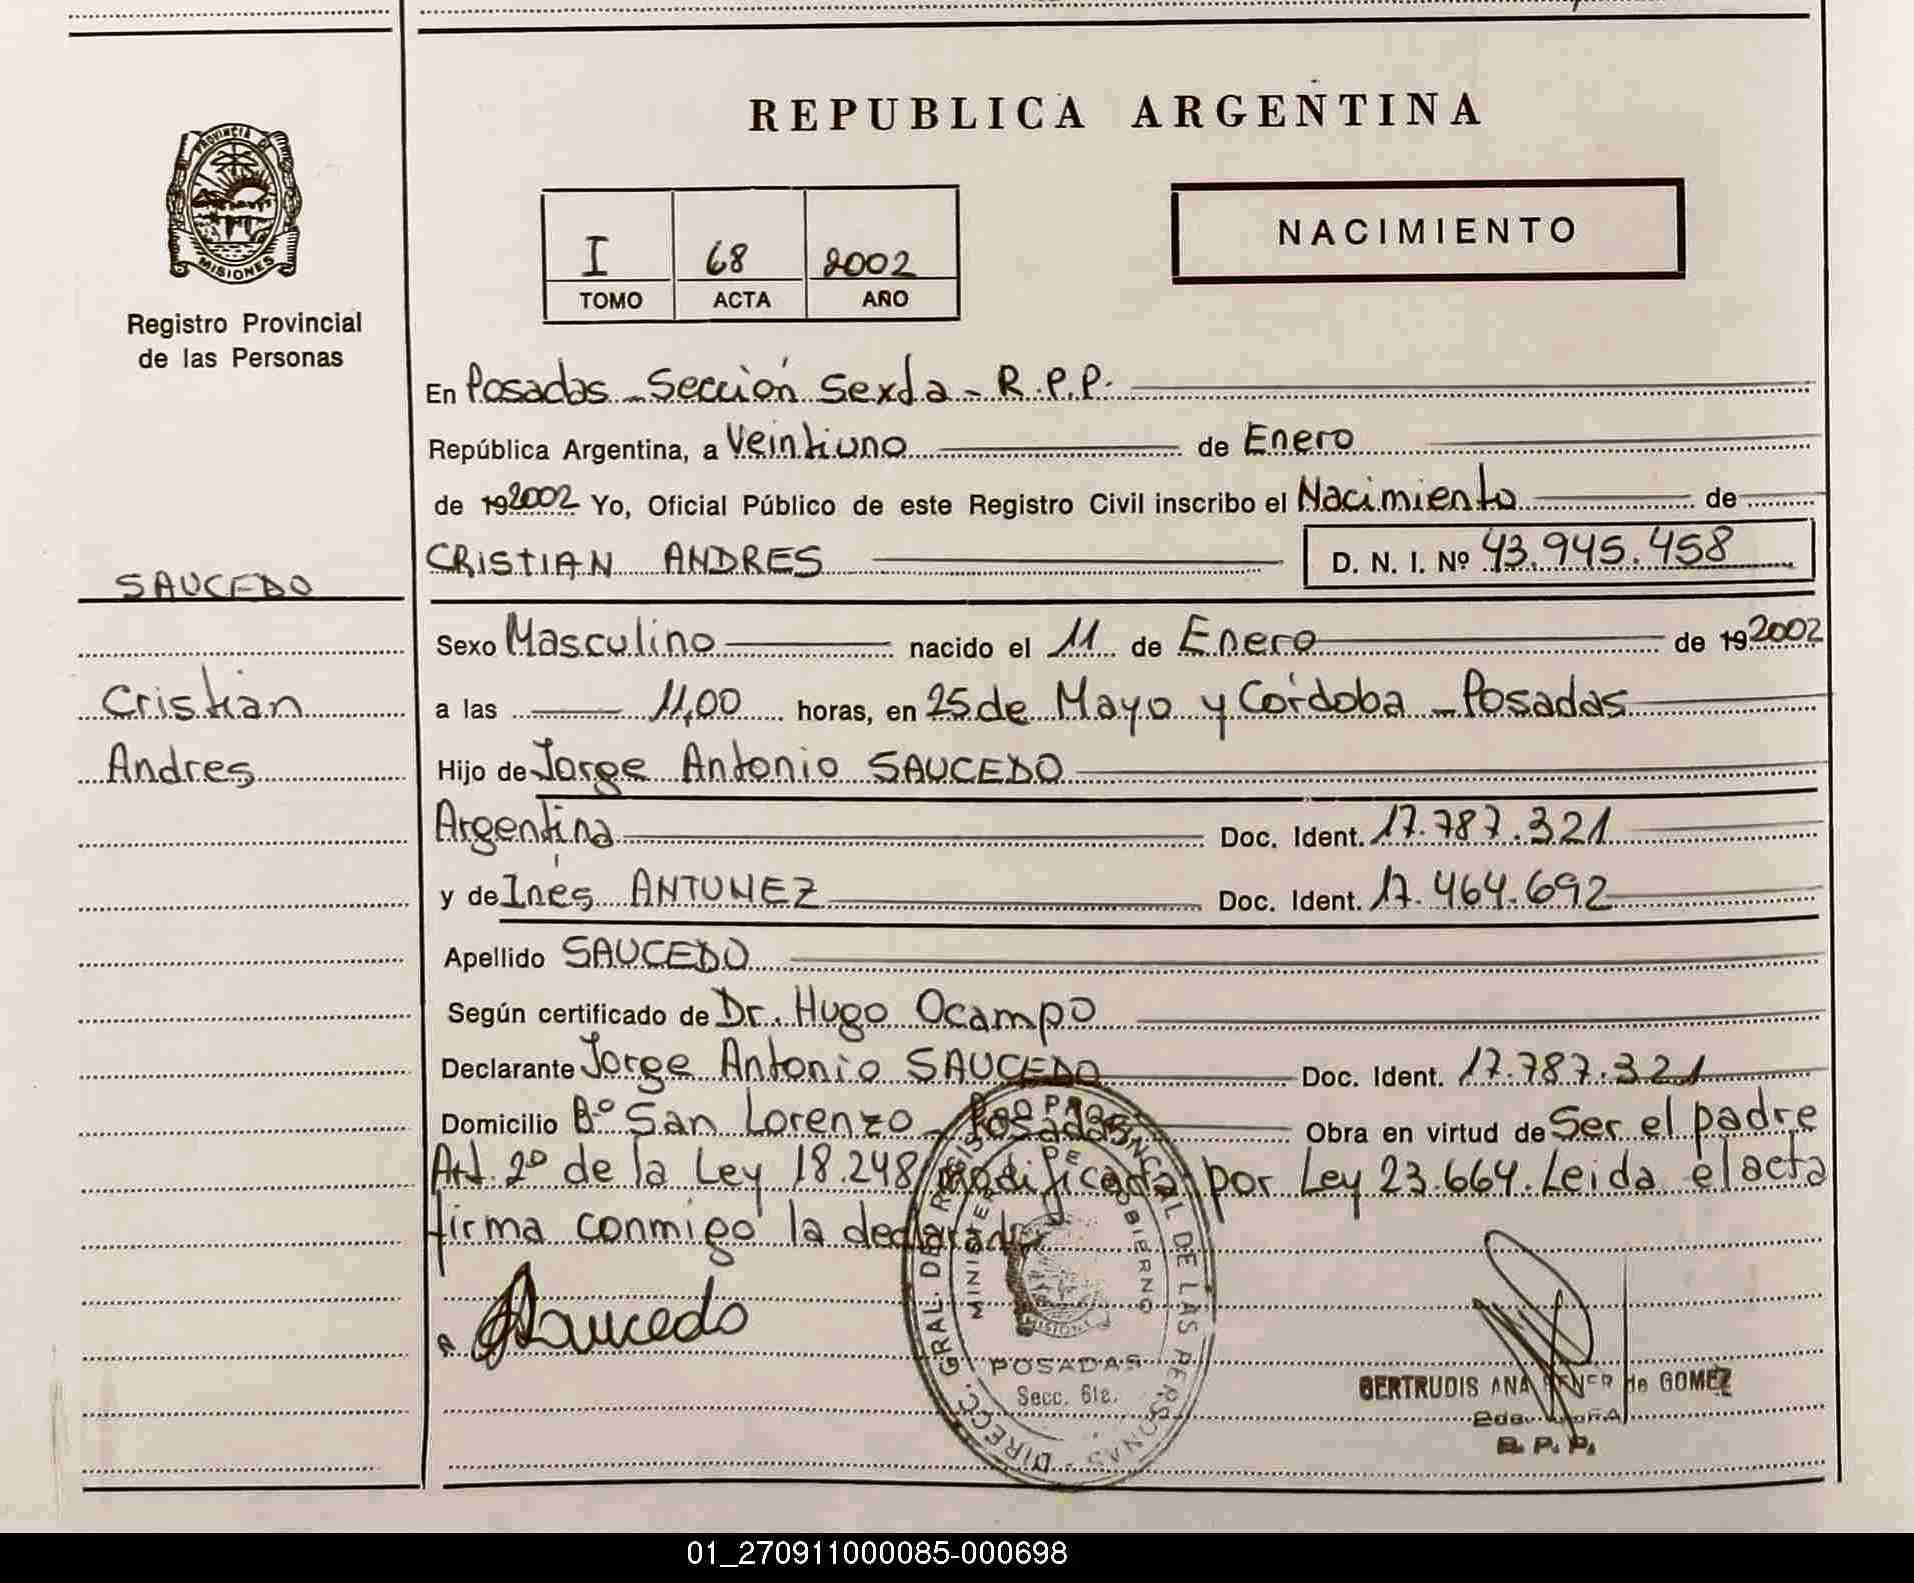 REPUBLICA ARGENTINA
PROVINCIA DE
MISIONES
Registro Provincial
de las Personas
I 68 2002
TOMO ACTA AÑO
NACIMIENTO
En Posadas - Sección Sexta - R.P.P.
República Argentina, a Veintiuno de Enero
de 192002 Yo, Oficial Público de este Registro Civil inscribo el Nacimiento de
CRISTIAN ANDRES D. N. I. Nº 43.945.458
SAUCEDO
Cristian
Andres
Sexo Masculino nacido el 11 de Enero de 192002
a las 11,00 horas, en 25 de Mayo y Córdoba - Posadas
Hijo de Jorge Antonio SAUCEDO
Argentina Doc. Ident. 17.787.321
y de Inés ANTUNEZ Doc. Ident. 17.464.692
Apellido SAUCEDO
Según certificado de Dr. Hugo Ocampo
Declarante Jorge Antonio SAUCEDO Doc. Ident. 17.787.321
Domicilio Bº San Lorenzo - Posadas Obra en virtud de Ser el padre
Art. 2º de la Ley 18.248 modificada por Ley 23.664. Leida el acta
firma conmigo la declarante
Saucedo
DIRECC. GRAL. DEL REGISTRO PROVINCIAL DE LAS PERSONAS
MINISTERIO DE GOBIERNO
MISIONES
POSADAS
Secc. 6ta.
GERTRUDIS ANA de GOMEZ
R. P. P.
01_270911000085-000698